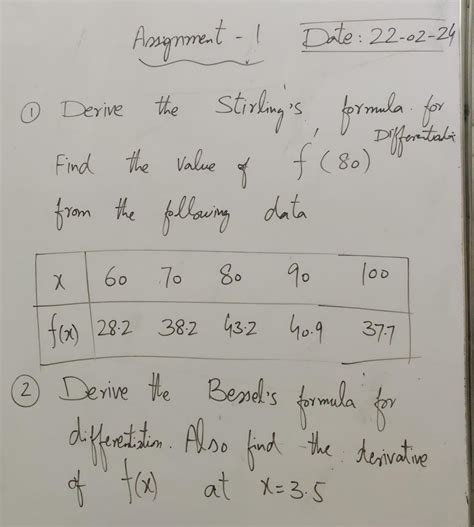 Assignment - 1
Date: 22-02-24
① Derive the Stirling's formula for
Differentiation
Find the value of f'(80)
from the following data
x 60 70 80 90 100
f(x) 28.2 38.2 43.2 40.9 37.7
② Derive the Bessel's formula for
differentiation. Also find the derivative
of f(x) at x=3.5